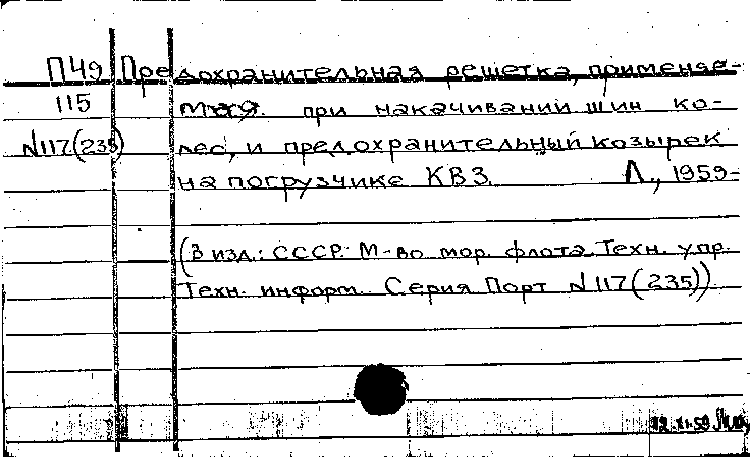 П49 Предохранительная решетка, применяе-
115 мая при накачивании шин ко-
N117(235) лес, и предохранительный козырек
на погрузчике КВЗ. Л., 1959-
(В изд.: СССР. М-во мор. флота. Техн. упр.
Техн. информ. Серия Порт N117(235))
12.XI.59